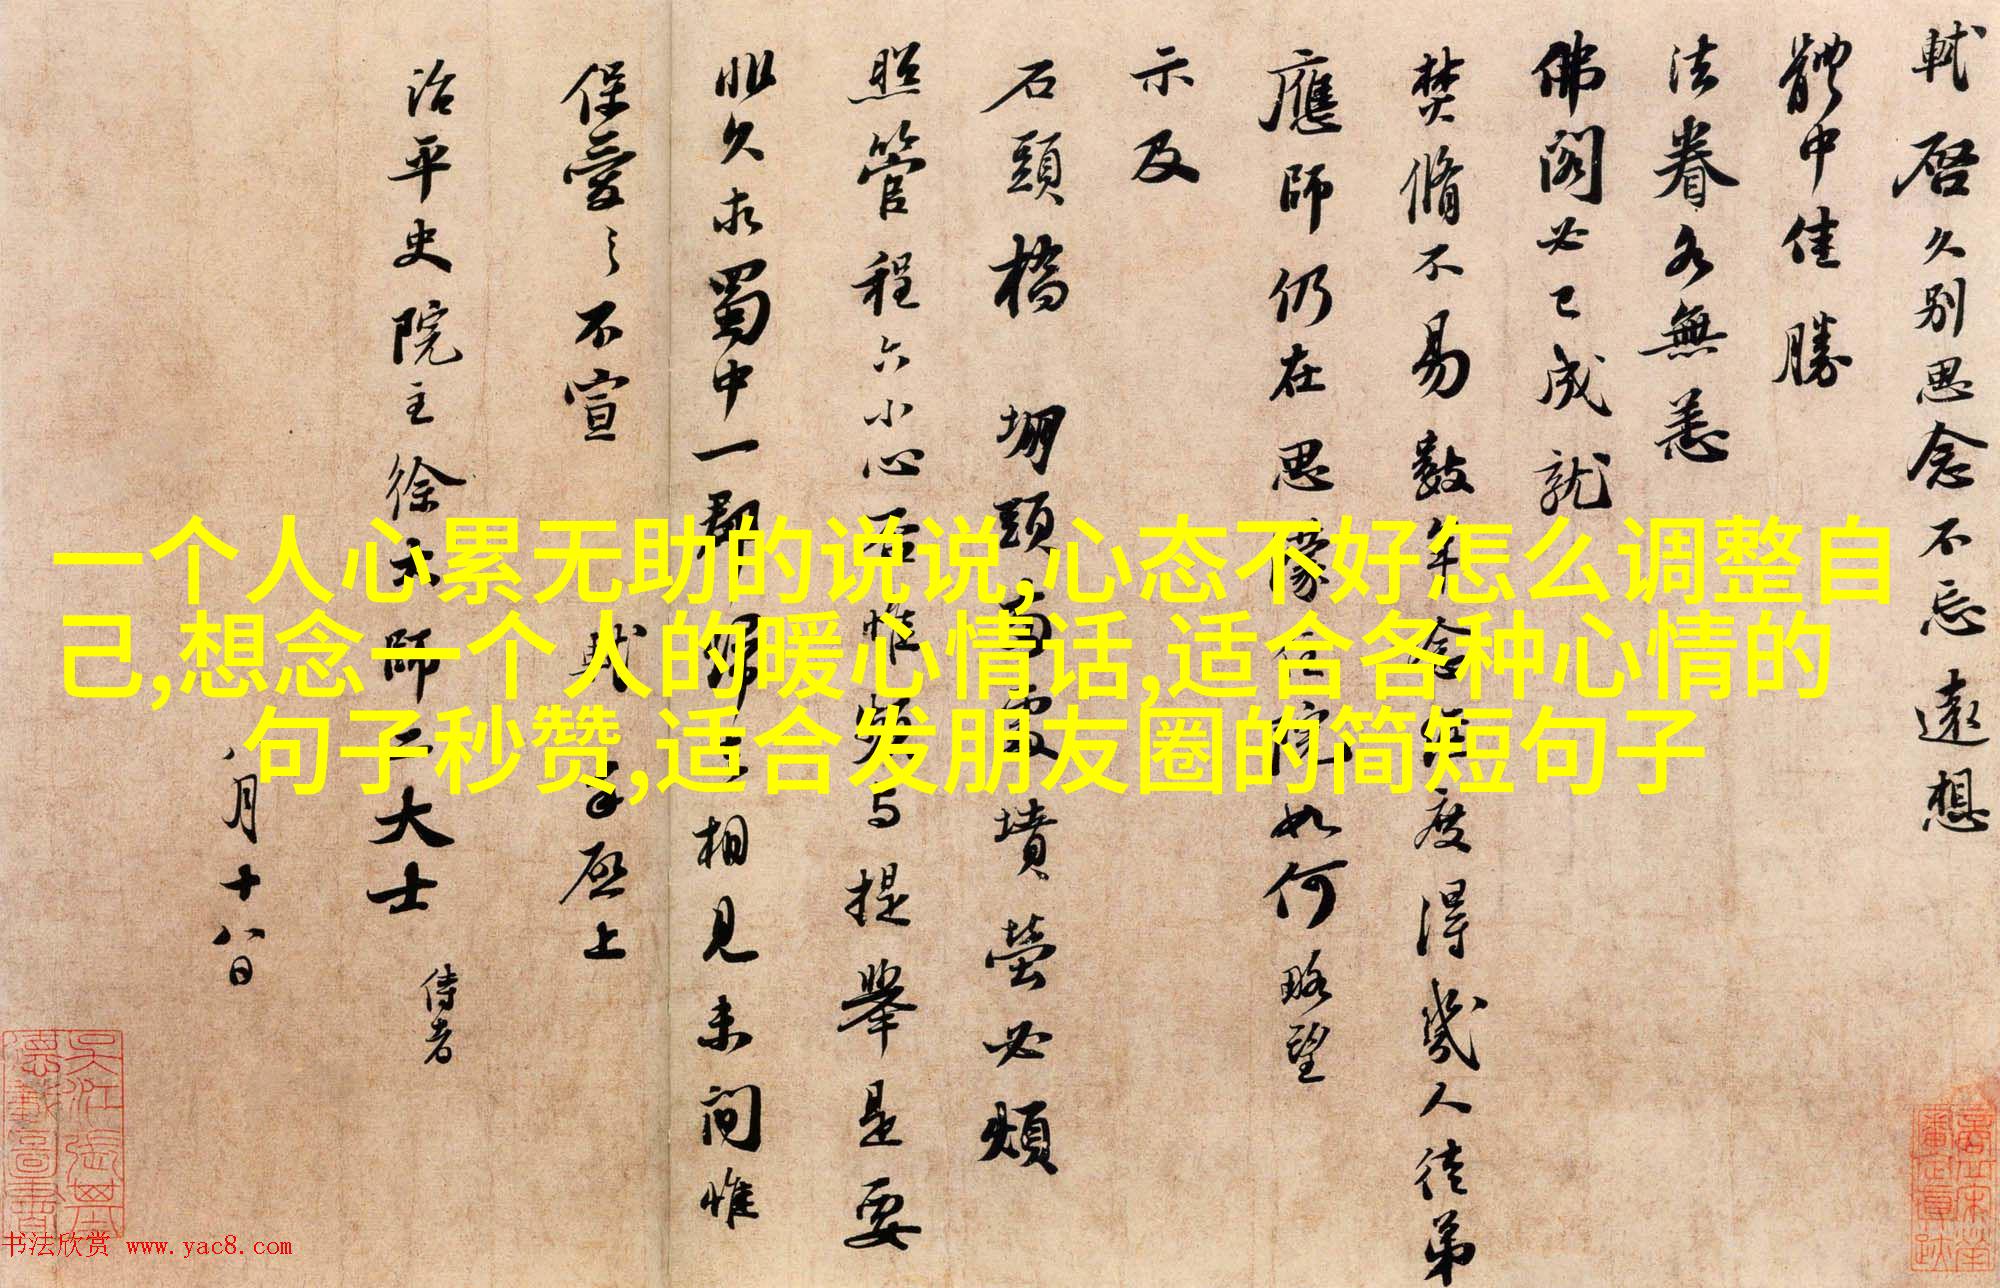 軾啓久别思念不忘遠想
體中佳勝
法眷各無恙
佛閣必已成就
焚脩不易數年念經度得幾人徒弟
應師仍在思濛住院如何略望
示及
石頭橋堋頭兩處墳塋必煩
照管程六小心否惟頻与提舉是要
非久求蜀中一郡歸去相見未間惟
保愛之不宣 軾手啓上
治平史院主徐大師二大士 侍者
八月十八日
一个人心累无助的说说,心态不好怎么调整自
己,想念一个人的暖心情话,适合各种心情的
句子秒赞,适合发朋友圈的简短句子
书法欣赏 www.yac8.com